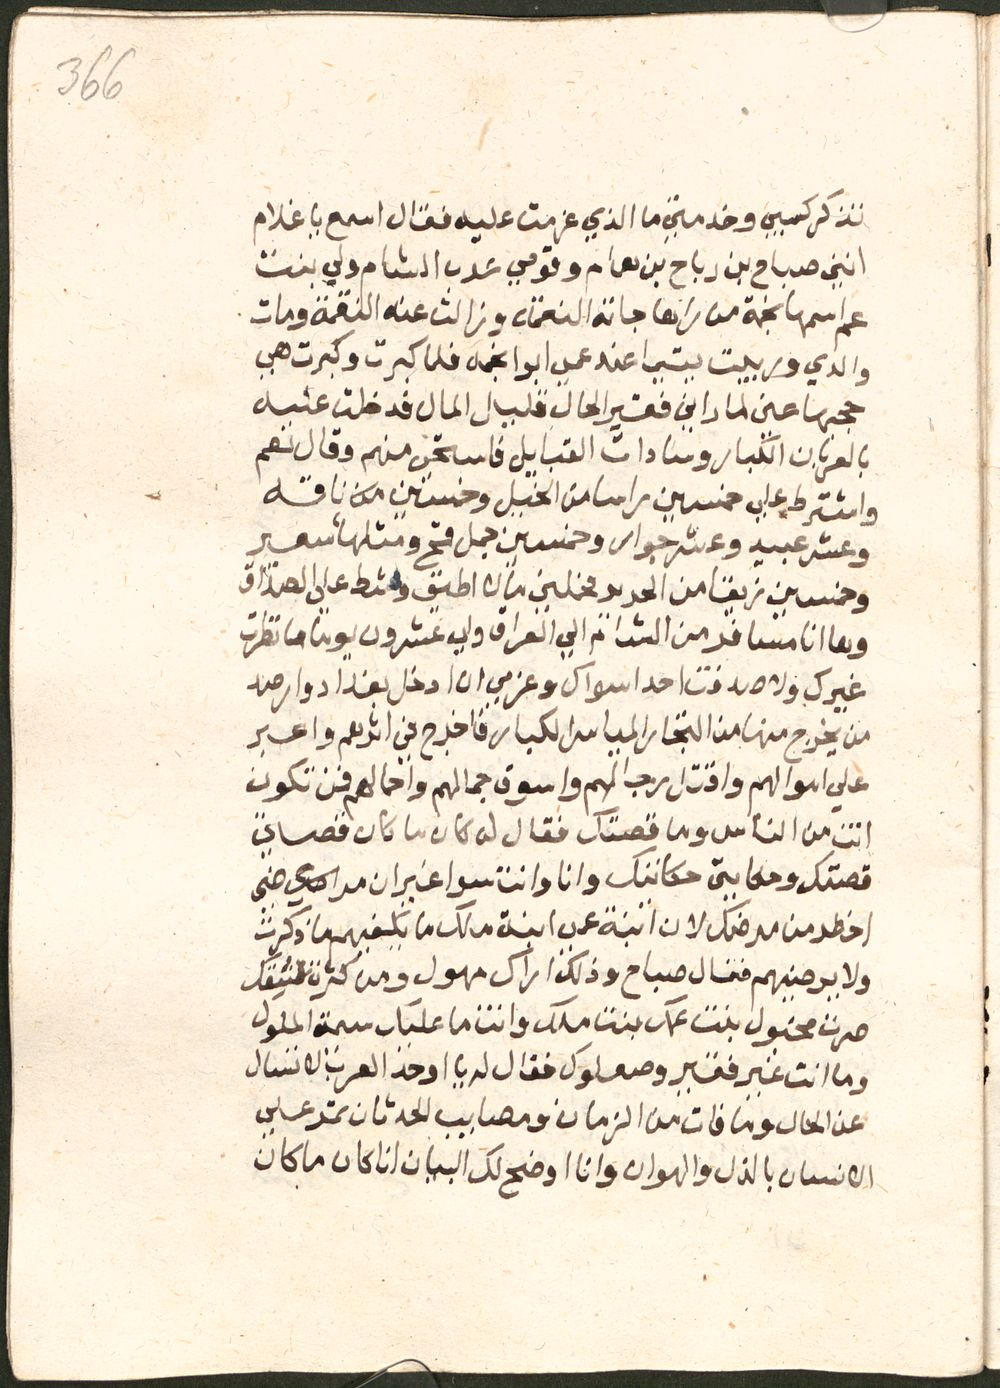 366
نذكر كسبي وخدمتي ما الذي عزمت عليه فقال اسمع يا غلام
انني صباح بن رباح بن همام وقومي عرب الشام ولي بنت
عم اسمها نجمة من راها جاته النعمة وزالت عنه النقمة ومات
والدي وربيت يتيما عند عمي ابوا نجمه فلما كبرت وكبرت هي
حجبها عني لما راني فقير الحال قليل المال فدخلت عليه
بالعربان الكبار وسادات القبايل فاستحى منهم وقال نعم
واشترط علي خمسين راسا من الخيل وخمسين من ناقه
وعشر عبيد وعشر جوار وخمسين جمل قمح ومثلها شعير
وخمسين من الحديد ما لا اطيق وشط علي الصداق
وها انا مسافر من الشام الي العراق ولي عشرون يوما ما نظرت
غيرك ولا صدفت احد اسواك وعزمي ان ادخل بغداد وارصد
من يخرج منها من التجار المياسر الكبار فاخرج في اثرهم واعبر
علي اموالهم واقتل رجالهم واسوق جمالهم واحمالهم فمن تكون
انت من الناس وما قصتك فقال له كان ما كان قصتي
قصتك وحكايتي حكايتك وانا وانت سوا غير ان مرضي
اخطر من مرضك لان ابنة عمي ابنة ملك ما يكفيهم ما ذكرت
ولا يرضيهم فقال صباح وذلك اراك مهول ومن كثرة عشقك
صرت مخبول بنت عمك بنت ملك وانت ما عليك سمة الملوك
وما انت غير فقير وصعلوك فقال له يا اوحد العرب لا تسال
عن الحال وما فات من الزمان ومصايب الحدثان تمر علي
الانسان بالذل والهوان وانا اوضح لك البيان انا كان ما كان